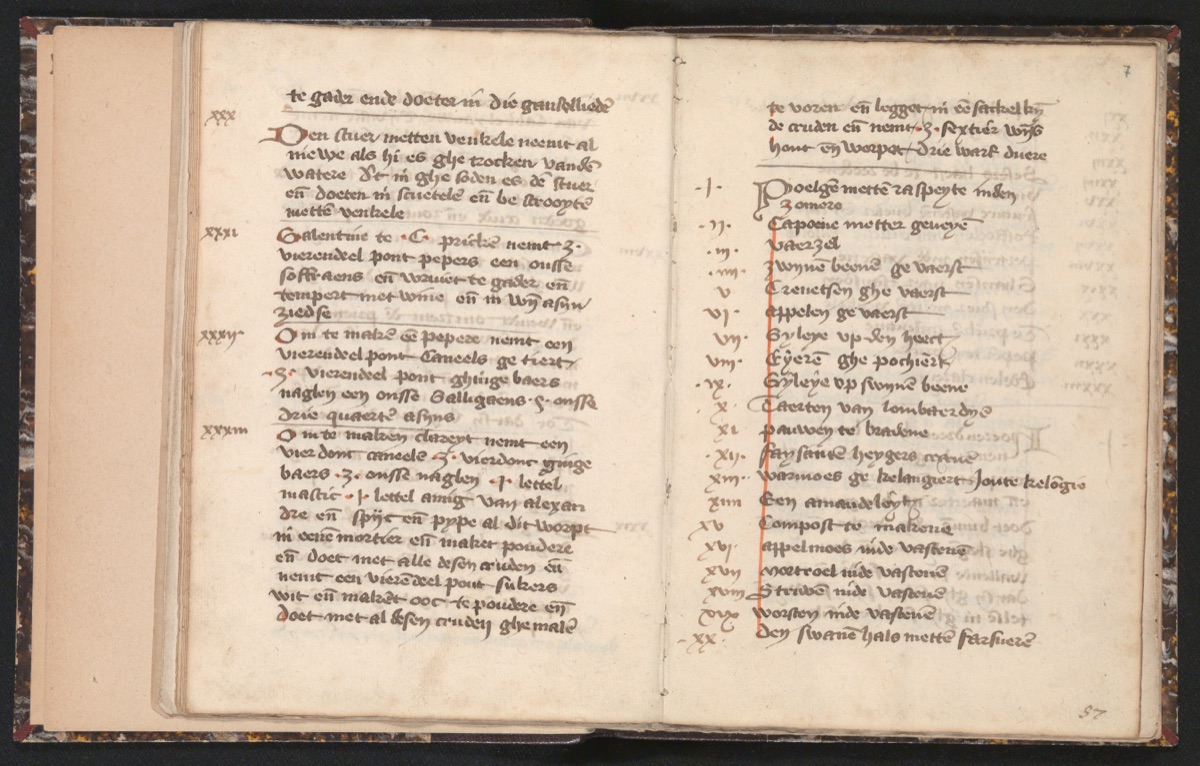 te gader ende doeter in die gansollieden̄
xxx
Den stuer metten venkele neemt al
niewe als hi es ghetrocken vandē
watere dʼt in ghe soden es dē stuer
en̄ doeten in scuetelē en̄ be strooytē
mettē venkele
xxxi
Galentine te ·C· prickē nemt ·3·
vierendeel pont pepers een onsse
soffraens en̄ wrivet te gader en̄
tempert met wine en̄ in wijn asijn
ziedse
xxxij
Om te makē eē pepere nemt een
vierendeel pont Caneels ge tiert
·3· vierendeel pont ghingebaers
naglen een onsse Galligaens ·5· onsse
drie quaertē asijns
xxxiii
Om te maken clareyt nemt een
vierdont caneelē ·3· vierdont ginge
baers ·3· onsse naglen ·j· lettel
mastic ·j· lettel amig van alexan
dre en̄ spijt en̄ pype al dit worpt
in eenē mortier en̄ maket poudere
en̄ doet met alle desen cruden en̄
nemt een vierēdeel pont sukers
wit en̄ makēt ooc te poudere en̄
doet met al desen cruden ghemalē
7
te voren en̄ legget in eē sackelkijn
de cruden en̄ nemt ·3· sextier wijs
hout en̄ worpet drie warf duere
·j· Poelgē mettē raspeyte inden
zomere
·ij· Capoene metter geneyē
·iij· vaerzel
·iiij· zwynnē beenē ge vaerst
v Creuetsen ghe vaerst
vj· appelen ge vaerst
vij· Gyleye vp den heect
viij· Eyerē ghe pochiert
·ix· Gyleye vp swynnē beene
x· Taerten van lombaerdyē
xi pauwen te bradene
·xij· faysantē heygers
xiij· warmoes ge kelangiert Joute kelōgie
xiiij Een amandeleyk
xv Compost te makene
xvj· appelmoes inde vastenē
xvij mortroel inde vastenē
xviij Struvē inde vastenē
xix worsten inde vastenē
·xx· Den swanē hals mettē farsuerē
57